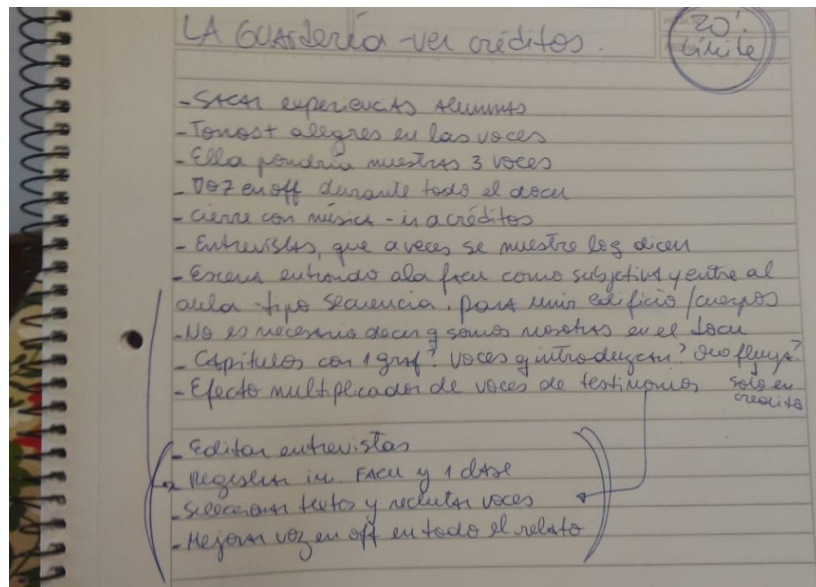 LA GUArdería - ver créditos.
20'
límite
- SACAR experienciAs Alumnas
- Tonos + alegres en las voces
- Ella pondría nuestras 3 voces
- Voz en off durante todo el docu
- cierre con música - ir a créditos
- Entrevistas, que a veces se muestre lo q dicen
- Escena entrando a la facu como subjetiva y entre al
aula - tipo secuencia, para unir edificio / cuerpos
- No es necesario decir q somos nosotras en el docu
- Capítulos con 1 graf? voces q introduzcan? O q fluya?
- Efecto multiplicador de voces de testimonios solo en
créditos
- Editar entrevistas
- Registrar im. FACU y 1 clase
- Seleccionar textos y reclutar voces
- Mejorar voz en off en todo el relato